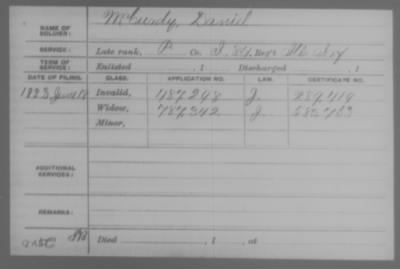 NAME OF SOLDIER: McCurdy, Daniel
SERVICE: Late rank, P Co. I, Reg't Inf
TERM OF SERVICE: Enlisted , 1 Discharged , 1
DATE OF FILING. CLASS. APPLICATION NO. LAW. CERTIFICATE NO.
1883 Invalid, 487298 J.
Widow, 787342 J.
Minor,
ADDITIONAL SERVICES:
REMARKS:
Died , 1 , at